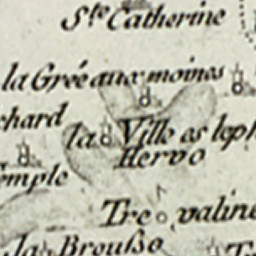 Ste Catherine
la Grée aux moines
chard
la Ville es
Hervo
emple
Tre valine
la Brousso